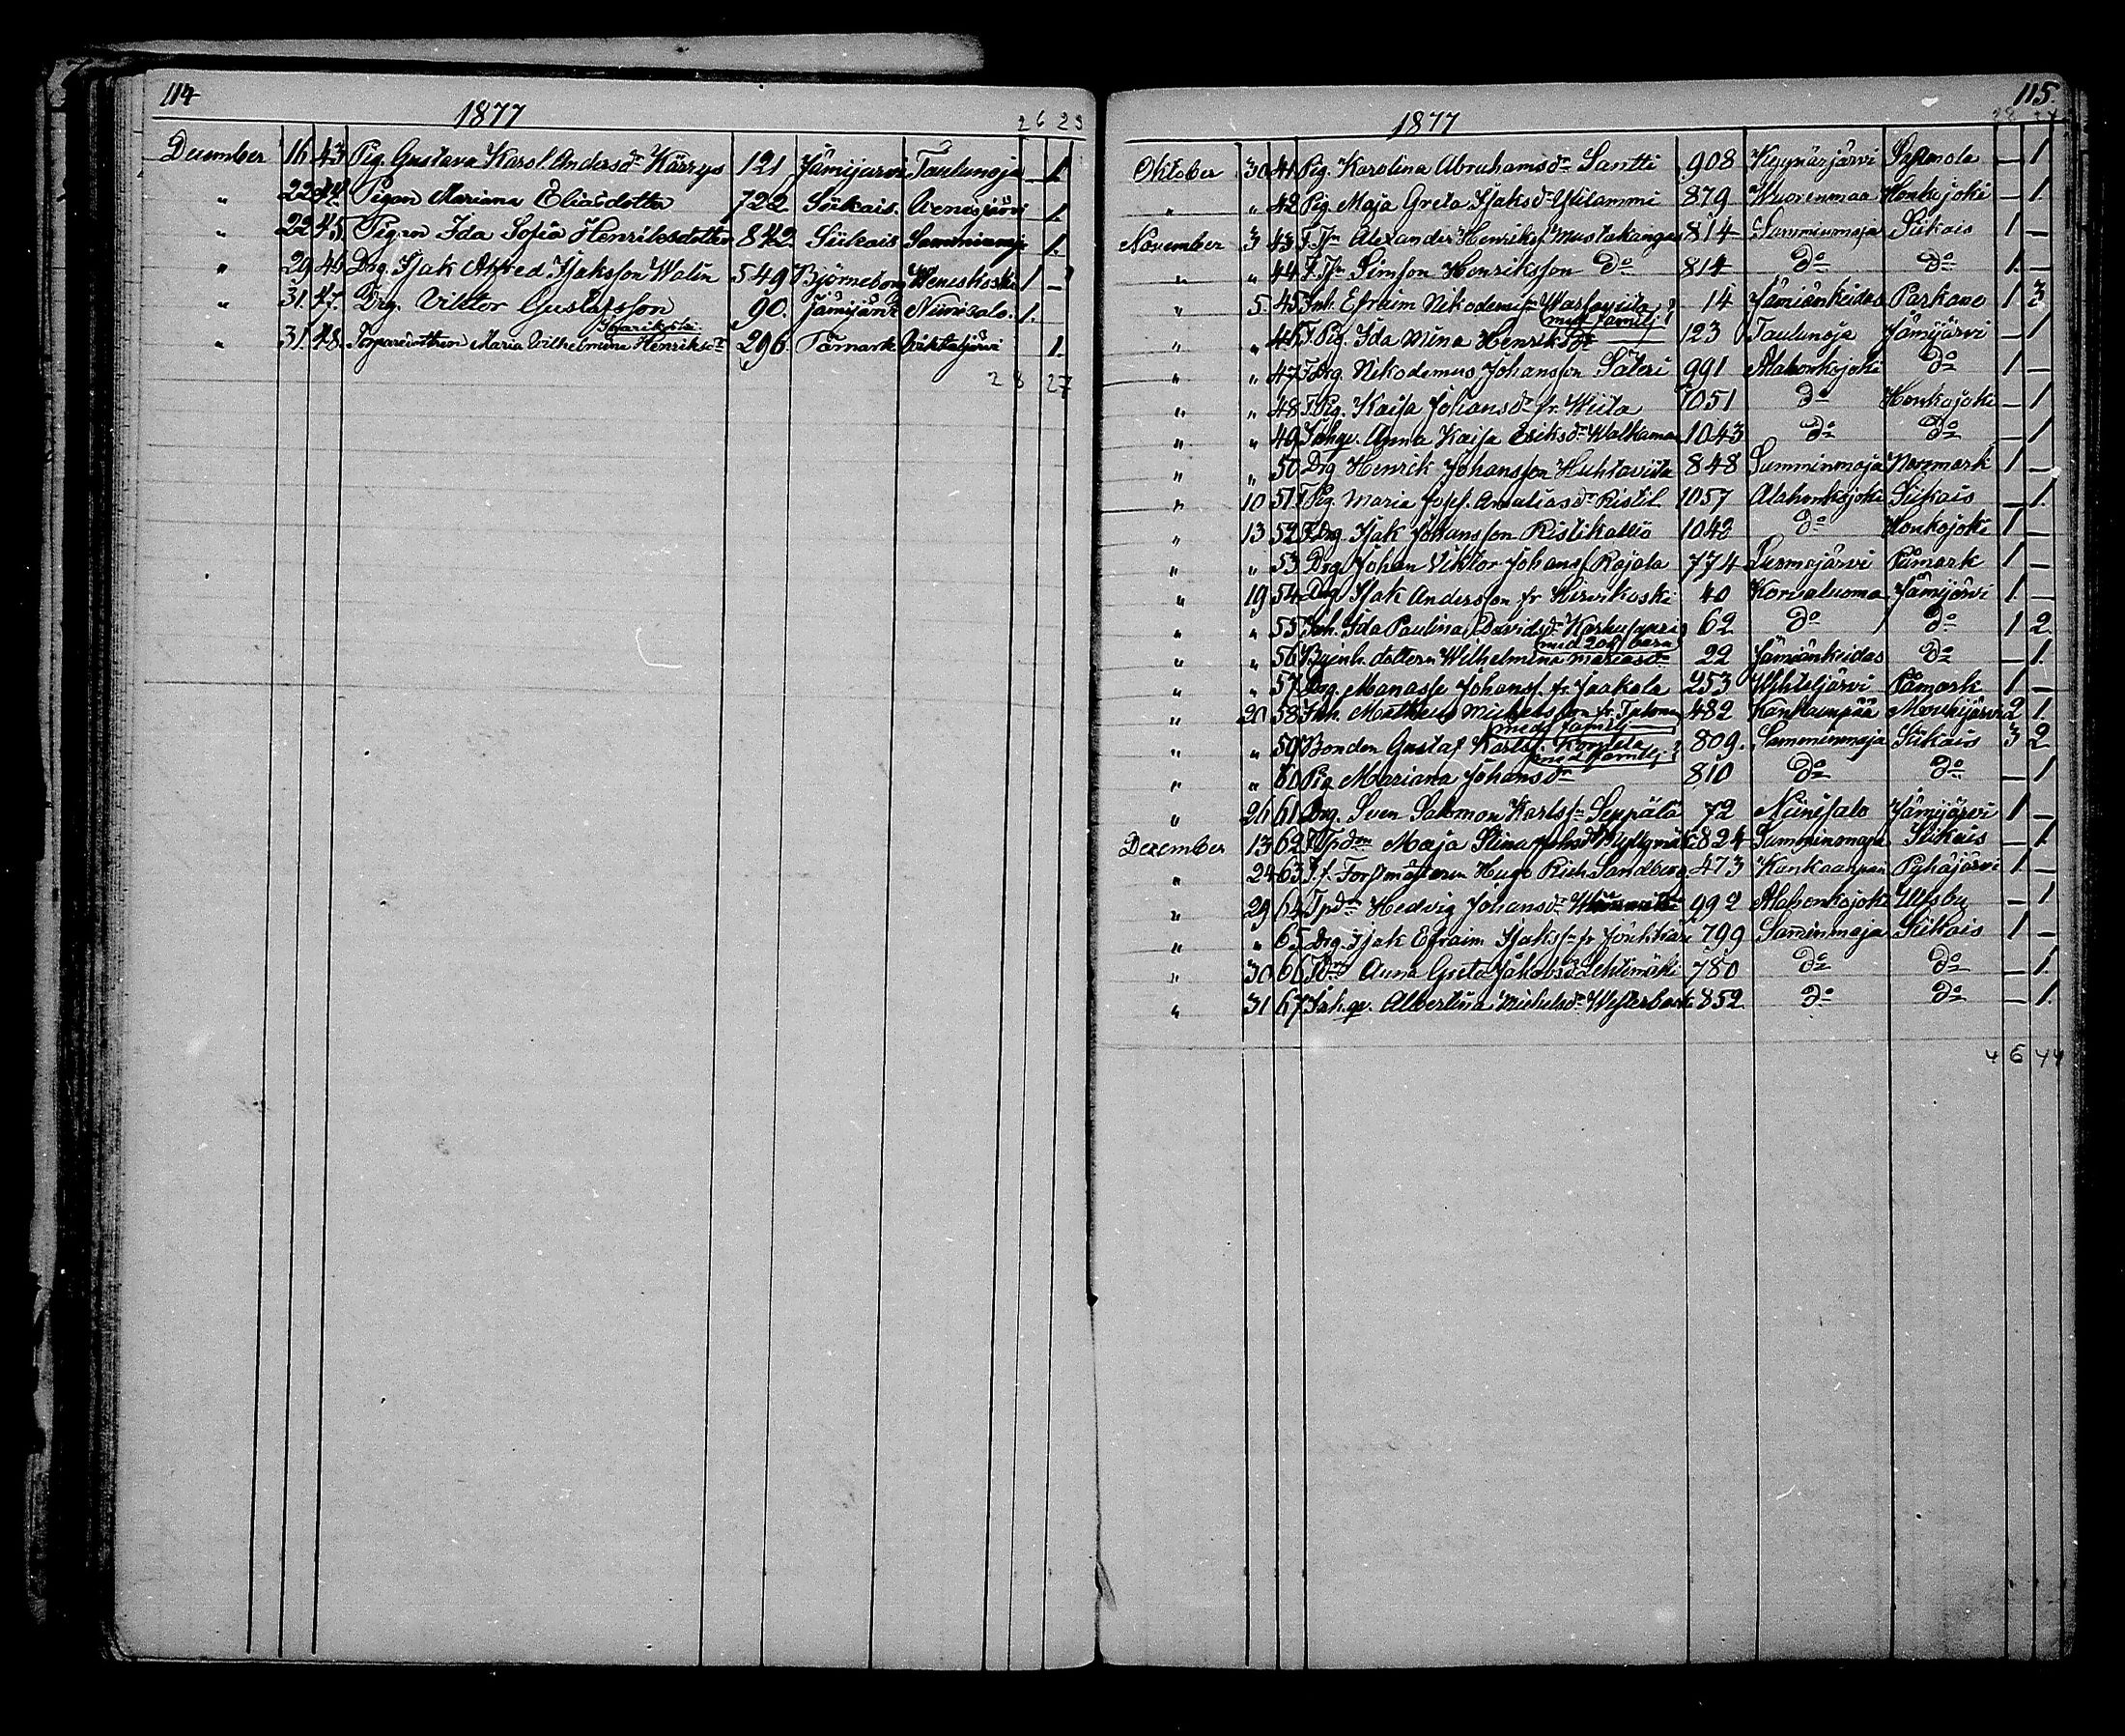 114
1877
26 29
December 16 43 Pig. Gustava Karol. Andersdr Kärrys 121 Jämijärvi Taulunoja — 1.
" 22 44. Pigan Mariana Eliasdotter 722 Siikais. Venesjärvi 1.
" 22 45. Pigan Ida Sofia Henriksdotter 842. Siikais Samminmaja 1.
" 29 46. Drg. Isak Alfred Isaksson Walin 549 Björneborg Veneskoski 1 —
" 31. 47. Drg. Viktor Gustafsson 90. Jämijärvi Niinisalo. 1.
" 31. 48. Torparedottren Maria Vilhelmina Henriksdr 296. Påmark 1.
28 27
115.
1877
Oktober 30 41 Pig. Karolina Abrahamsdr Santti 908 Kyynärjärvi — 1
" " 42 Pig. Maja Greta Isaksdr Ylilammi 879 Vuorenmaa Honkajoki — 1.
November 3 43 T. Sn Alexander Henrikss. Mustakangas 814 Samminmaja Siikais 1 —
" " 44 T. Sn Simson Henriksson do 814 do do 1. —
" 5. 45 Inh. Efraim Nikodemiss. 14 Jämiänkeidas Parkano 1 3
med familj
" " 46 T. Pig. Ida Mina Henriksdr 123 Taulunoja Jämijärvi — 1
" " 47 T Drg. Nikodemus Johansson Säteri 991 Alahonkajoki do 1 —
" " 48 T. Pig. Kaisa Johansdr fr. Wiita 1051 do Honkajoki — 1
" " 49 Inhqv. Anna Kaisa Eriksdr Walkama 1043 do do — 1
" " 50 Drg Henrik Johansson Huhtaviita 848 Samminmaja Norrmark 1 —
" 10 51 T Pig. Maria Josef. Amaliasdr Ristil. 1057 Alahonkajoki Siikais — 1.
" 13 52 T. Drg. Isak Johansson Ristikallio 1042 do Honkajoki 1 —
" " 53 Drg. Johan Viktor Johanss. Rajala 774 Luomajärvi Påmark 1 —
" 19 54 Drg Isak Andersson fr Hirvikoski 40 Korvaluoma Jämijärvi 1 —
" " 55 Inh. Ida Paulina Davidsdr 62 do do 1 2.
med 2 oä barn
" " 56 dottern Wilhelmina Mariasdr 22 Jämiänkeidas do — 1.
" " 57 Drg. Manasse Johanss. fr Jaakola 253 Påmark 1 —
" 20 58 Inh. Matheus Michelsson fr. 482 Kankaanpää Mouhijärvi 2 1.
med familj
" " 59 Bonden Gustaf Karlss. Korpela 809. Samminmaja Siikais 3 2
med familj
" " 60 Pig Mariana Johansdr 810 do do — 1
" 26 61 Drg. Sven Salomon Karlss. Seppälä 72 Niinisalo Jämijärvi 1 —
December 13 62 Maja Stina Johsdr 824 Samminmaja Siikais — 1.
" 24 63 T. f. Forstmästaren Hugo Rich Sandberg 473 Kankaanpää Pyhäjärvi 1 —
" 29 64 Tpdr Hedvig Johansdr 992 Alahonkajoki Ulfsby — 1
" " 65 Drg. Isak Efraim Isakss. fr 799 Samminmaja Siikais 1 —
" 30 66 Anna Greta Jakobsdr Lehtimäki 780 do do — 1.
" 31 67 Inhqv. Albertina Michelsdr Westerback 852 do do — 1.
46 44